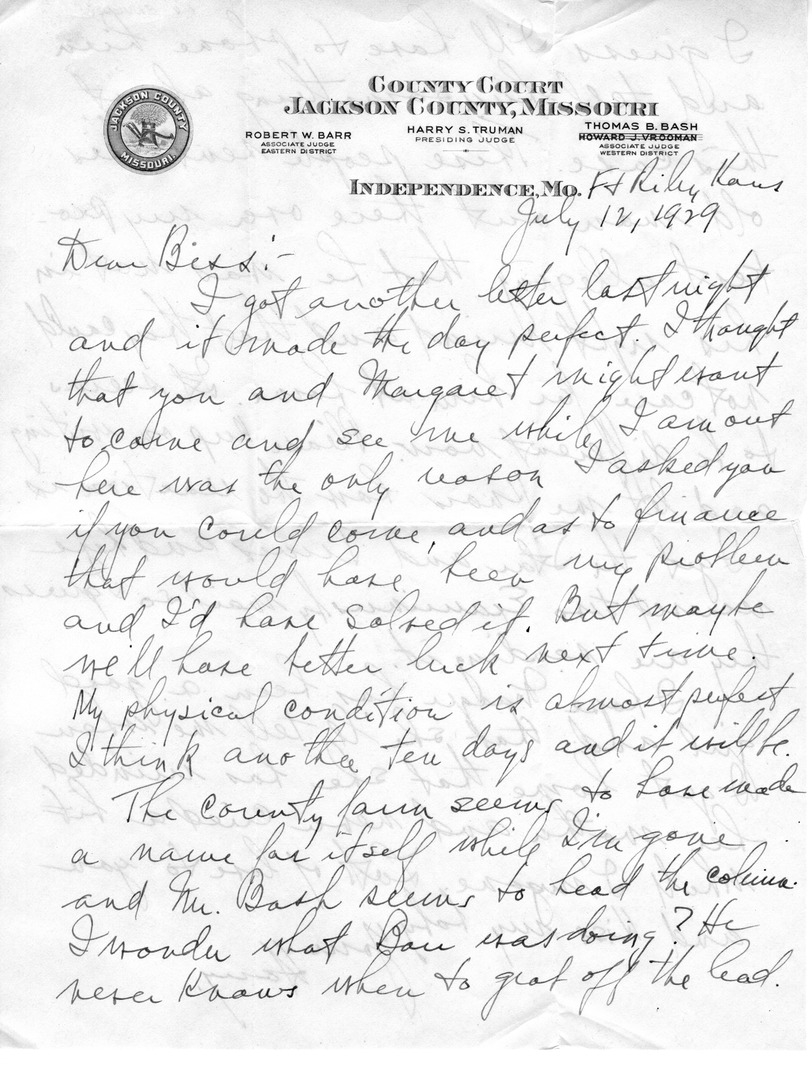 COUNTY COURT
JACKSON COUNTY, MISSOURI
JACKSON COUNTY
MISSOURI
ROBERT W. BARR
ASSOCIATE JUDGE
EASTERN DISTRICT
HARRY S. TRUMAN
PRESIDING JUDGE
THOMAS B. BASH
HOWARD J. VROOMAN
ASSOCIATE JUDGE
WESTERN DISTRICT
INDEPENDENCE, MO. Ft Riley, Kans
July 12, 1929
Dear Bess:-
I got another letter last night
and it made the day perfect. I thought
that you and Margaret might want
to come and see me while I am out
here was the only reason I asked you
if you could come, and as to finance
that would have been my problem
and I'd have solved it. But maybe
we'll have better luck next time.
My physical condition is almost perfect
I think another ten days and it will be.
The county farm seems to have made
a name for itself while I'm gone
and Mr. Bash seems to head the column.
I wonder what Barr was doing? He
never knows when to grab off the lead.